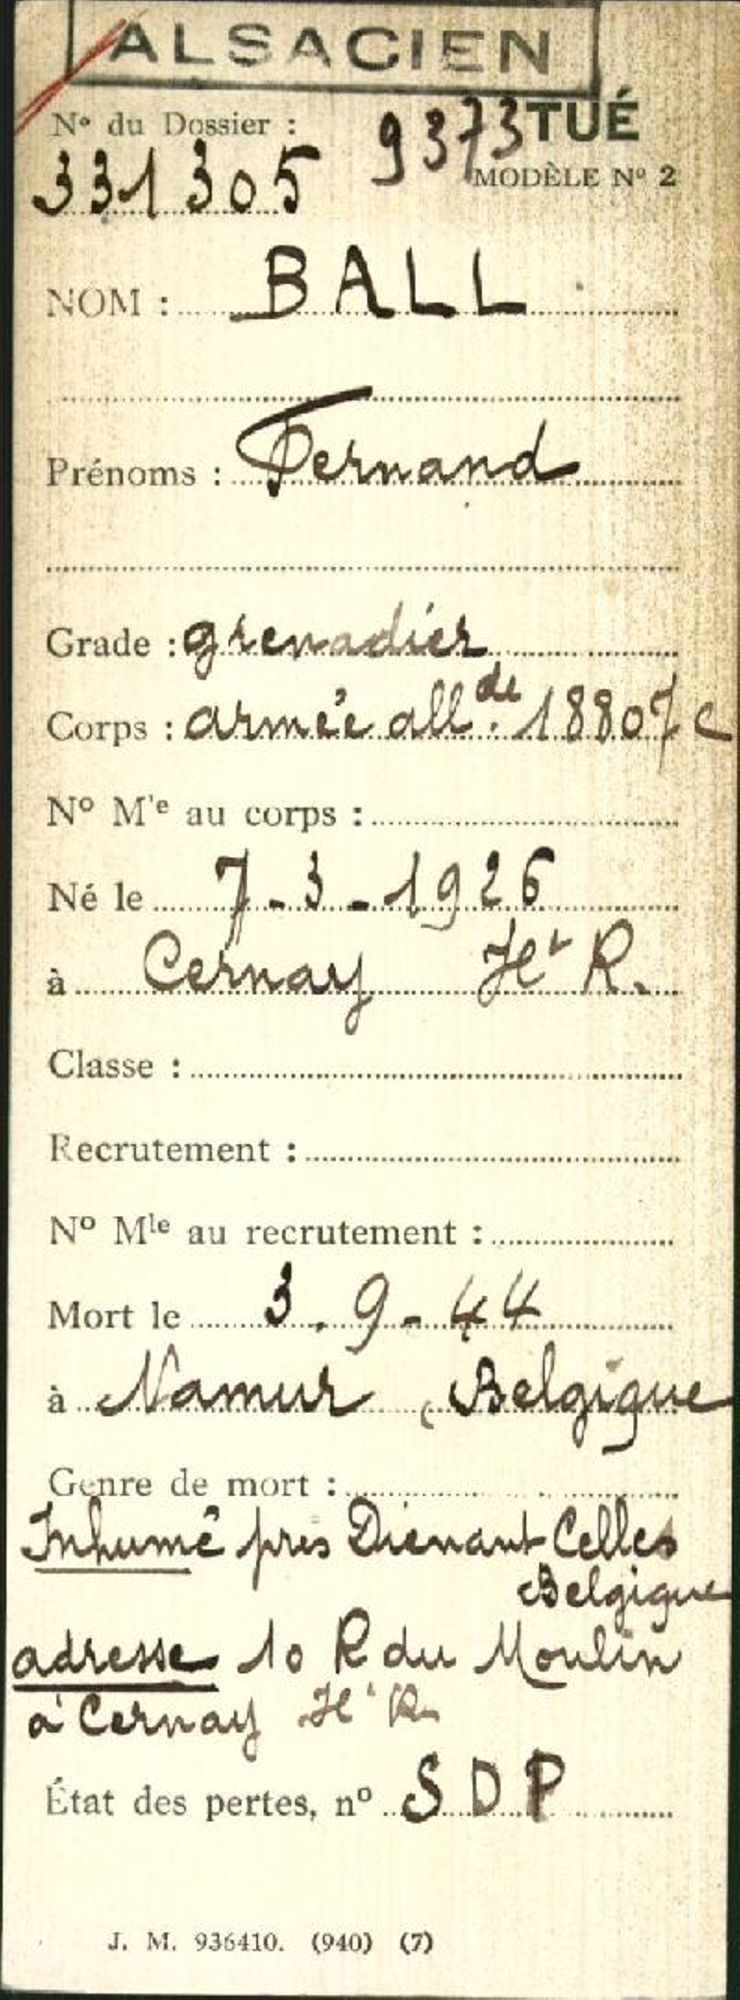 ALSACIEN
N° du Dossier : 9373 TUÉ
331305 MODÈLE N° 2
NOM : BALL
Prénoms : Fernand
Grade : grenadier
Corps : armée all.de 18807 C
N° Mle au corps :
Né le 7-3-1926
à Cernay Ht R.
Classe :
Recrutement :
N° Mle au recrutement :
Mort le 3.9-44
à Namur, Belgique
Genre de mort :
Inhumé près Dienant Celles
Belgique
adresse 10 R du Moulin
à Cernay Ht R.
État des pertes, n° SDP
J. M. 936410. (940) (7)